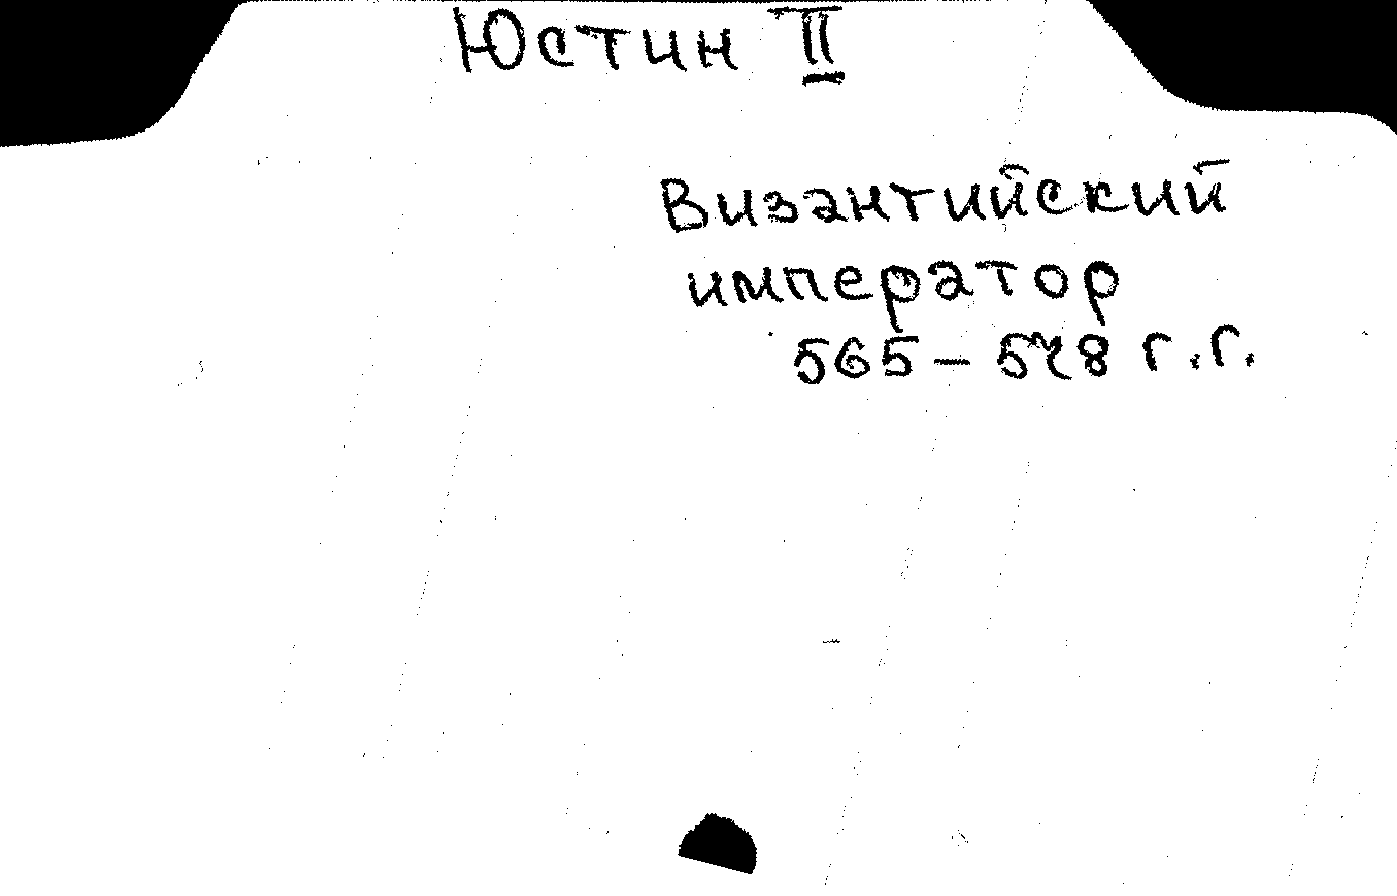 Юстин II
Византийский
император
565 – 578 г.г.